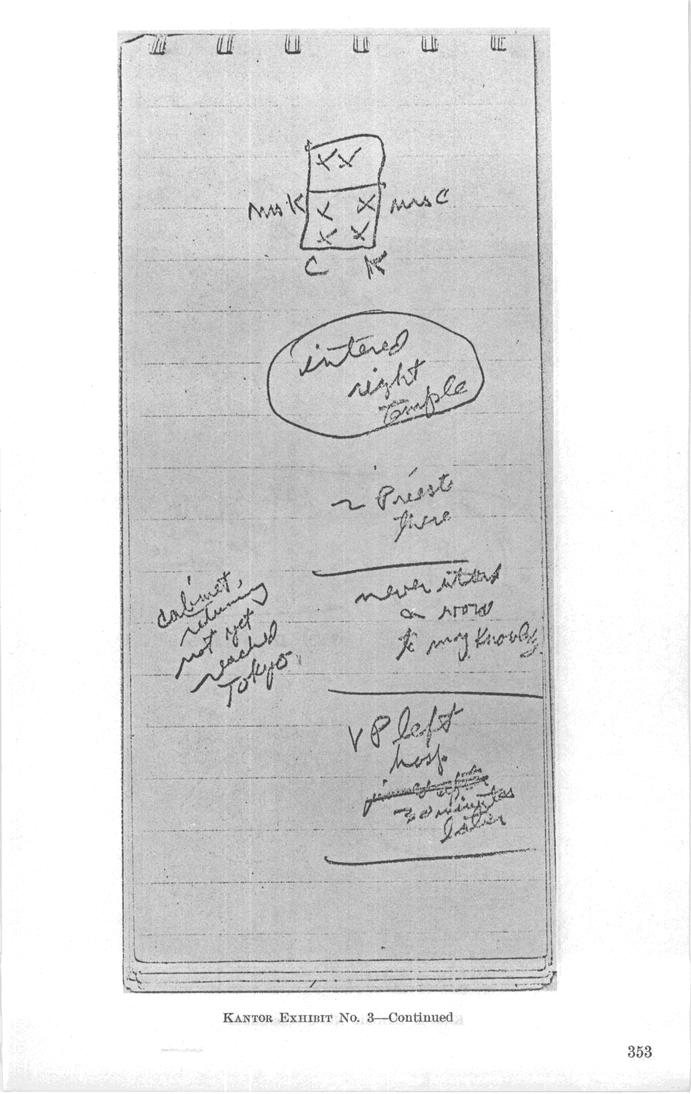 Mrs K
Mrs C
C K
intered
right
Temple
2 Priests
here
never uttered
a word
to my knowledg
cabinet,
returning
not yet
reached
Tokyo
VP left
hosp
30 minutes
later
KANTOR EXHIBIT No. 3—Continued
353